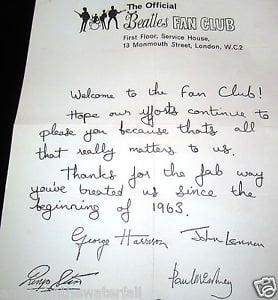 The Official
Beatles FAN CLUB
First Floor, Service House,
13 Monmouth Street, London, W.C.2
Welcome to the Fan Club!
Hope our efforts continue to
please you because thats all
that really matters to us.
Thanks for the fab way
you've treated us since the
beginning of 1963.
George Harrison
John Lennon
Ringo Starr
Paul McCartney
waterfall